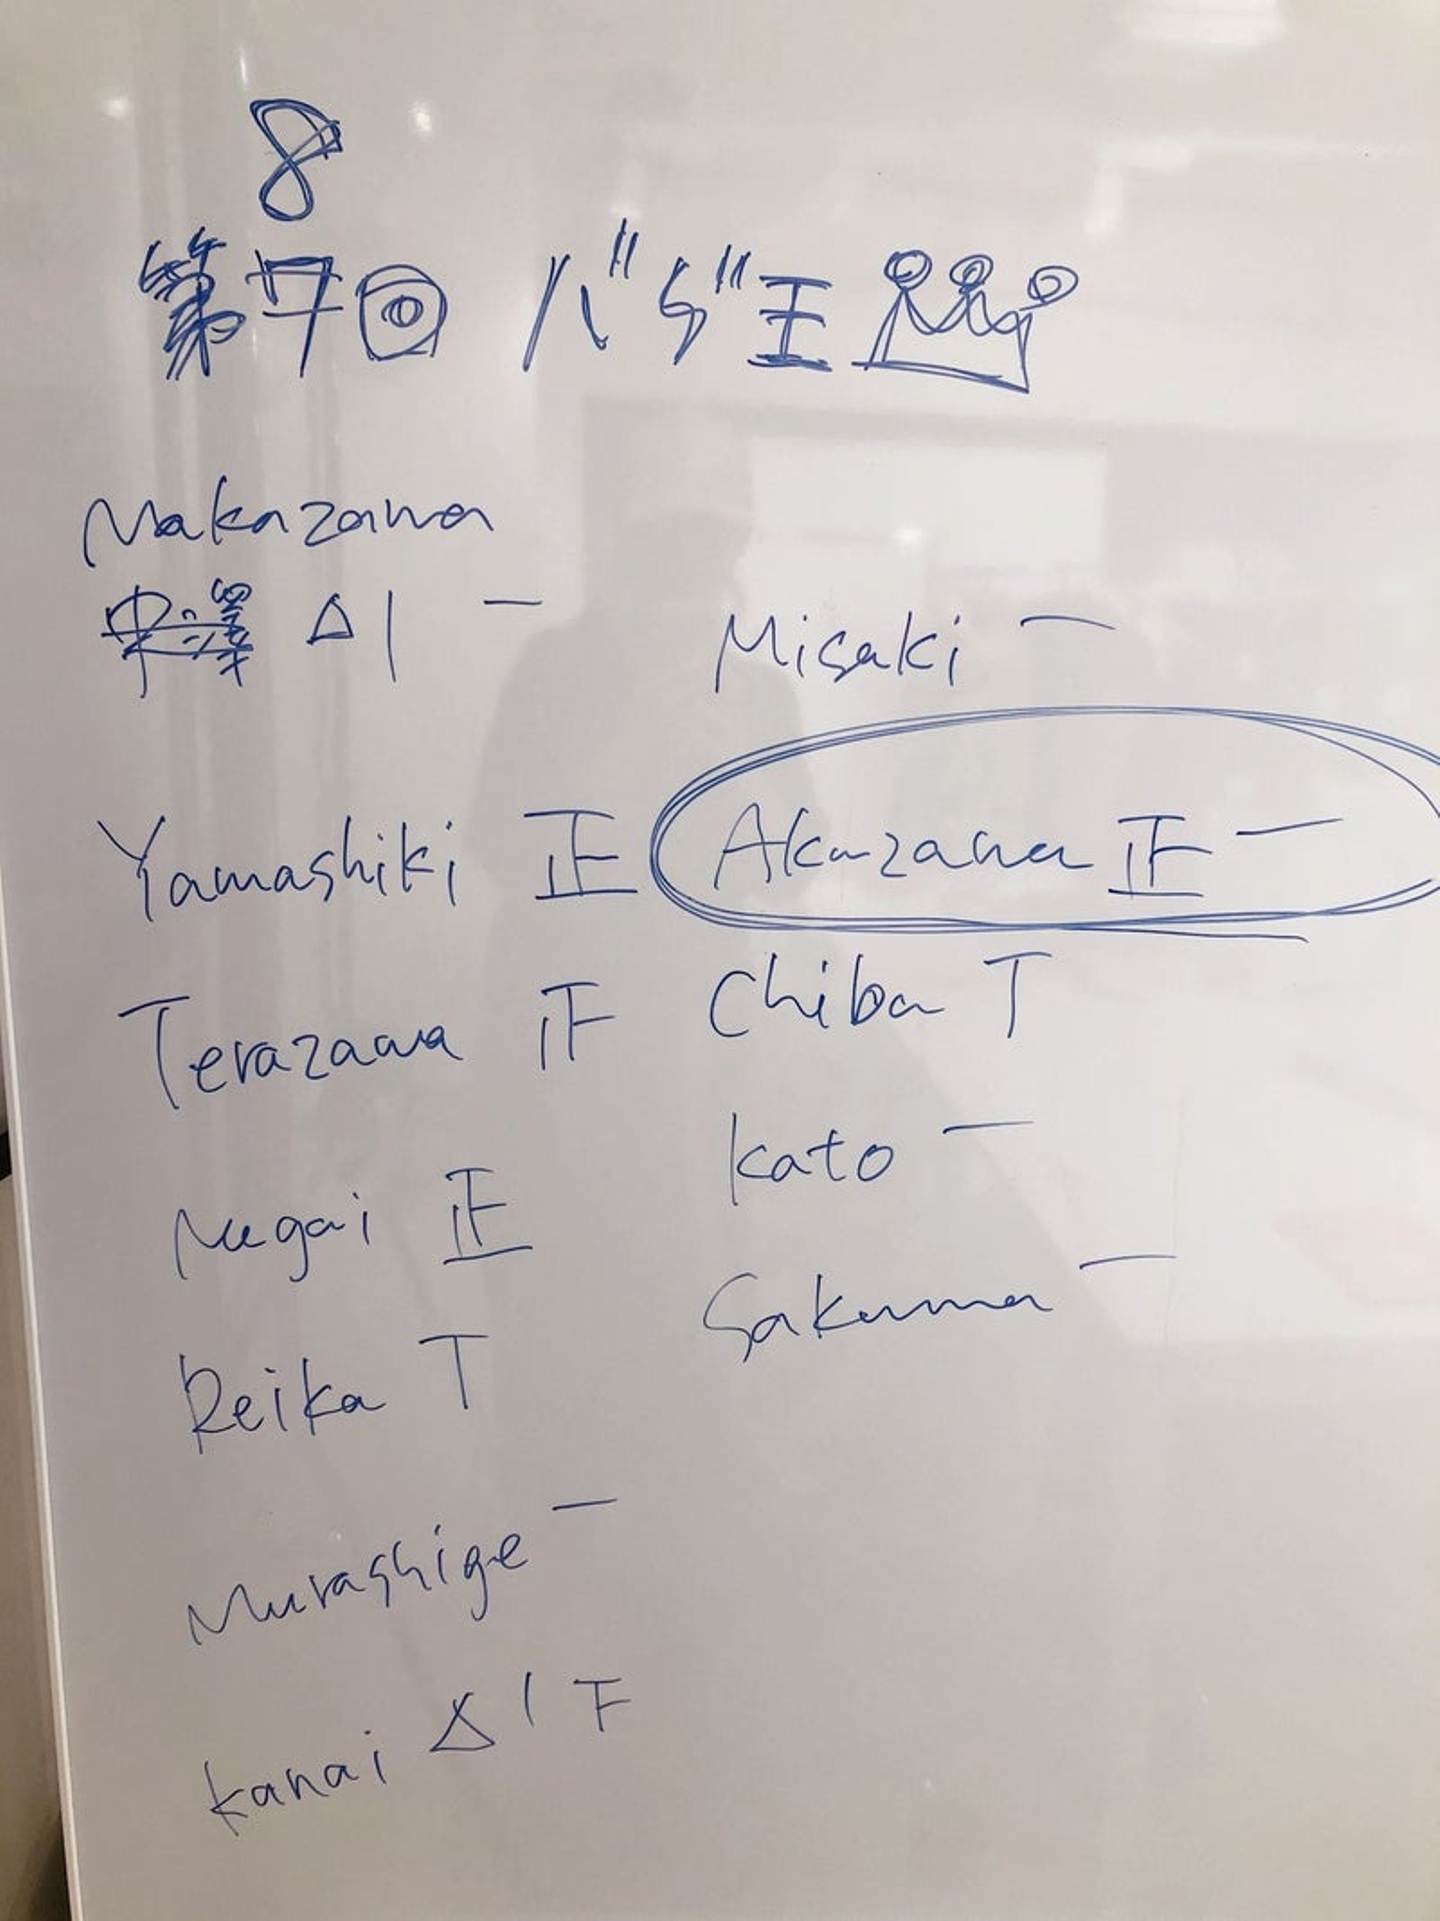 8
第7回 バダ王
Nakazawa
中澤 △1 一
Yamashiki 正
Terazawa 正
Nagai 正
Reika T
Murashige 一
Kanai △1 下
Misaki 一
Akazawa 正一
Chiba T
Kato 一
Sakuma 一